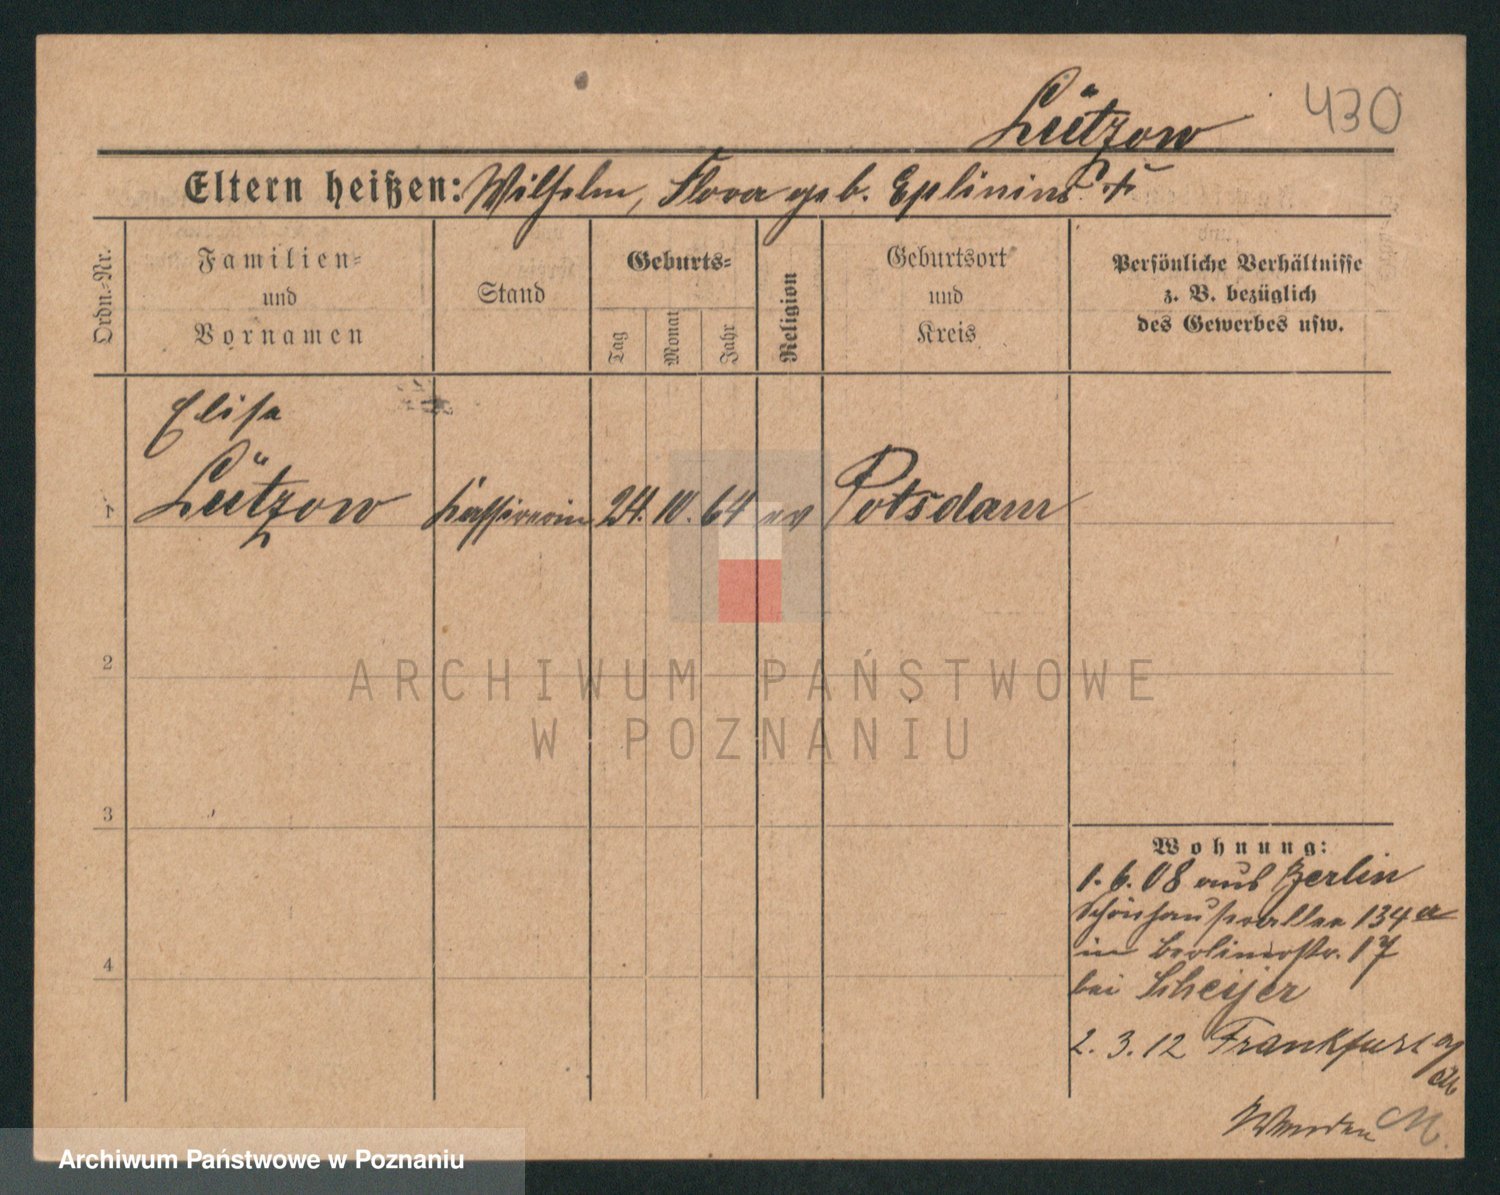 Lützow 430
Eltern heißen: Wilhelm, Flora geb.
Ordn.-Nr.
Familien-
und
Vornamen
Stand
Geburts-
Tag
Monat
Jahr
Religion
Geburtsort
und
Kreis
Persönliche Verhältnisse
z. B. bezüglich
des Gewerbes usw.
Elise
1 Lützow Kassirerin 24. 10. 64 ev Potsdam
2
ARCHIWUM PAŃSTWOWE
W POZNANIU
3
Wohnung:
1. 6. 08 aus Berlin
Schönhauserallee 134 a
in Berlinerstr. 17
4
bei Scheijer
2. 3. 12 Frankfurt a/
M.
Archiwum Państwowe w Poznaniu